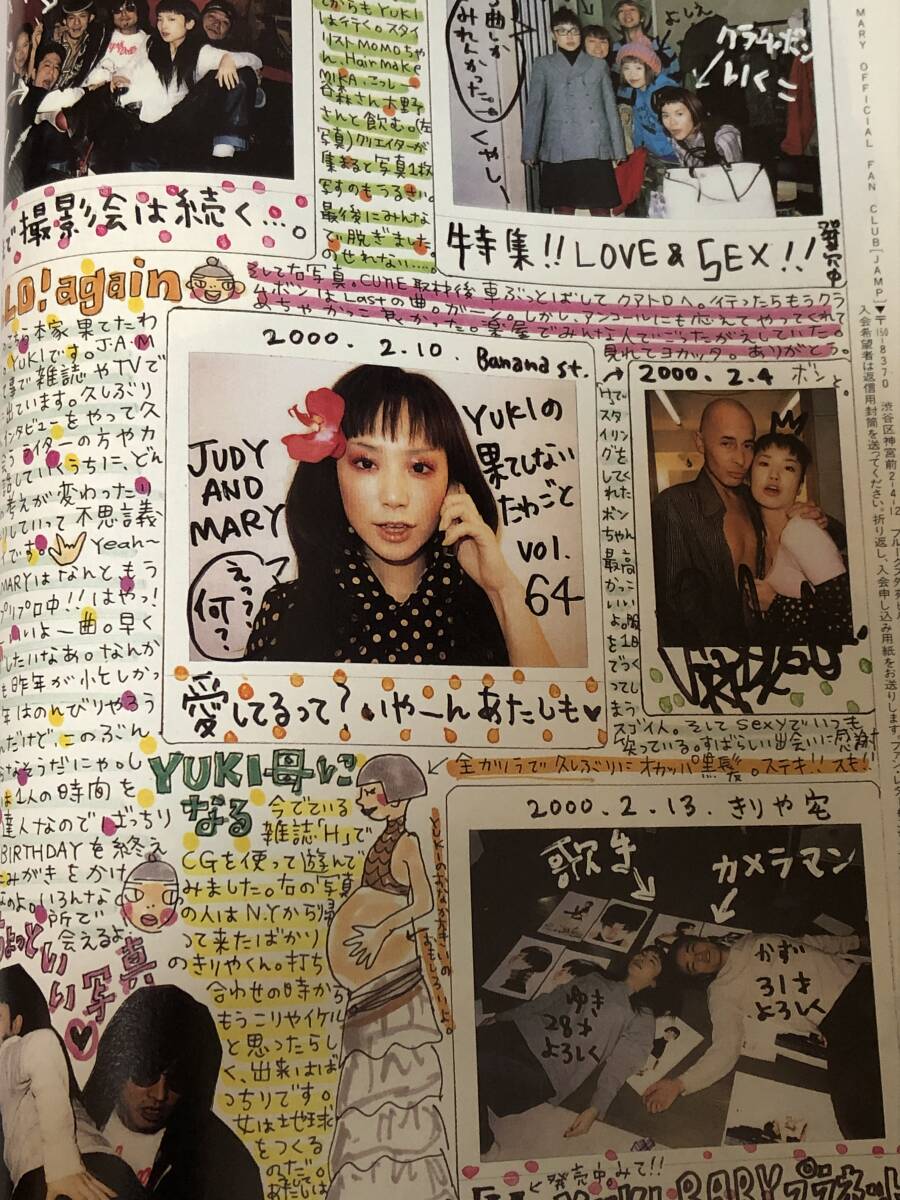 てからもYUKI
は行く。スタイ
リストMOMOちゃ
ん、Hair make
MIKA、こっしー
谷森さん大野
さんと飲む。(左
写真)クリエイターが
集まると写真1枚
写すのもうるさい。
最後にみんな
で脱ぎました。
のせれない……。
撮影会は続く…。
曲しか
みれんかった。
くやしい、
よしえ
クラムボン
いくこ
特集!!LOVE & SEX!!
発売中
MARY OFFICIAL FAN CLUB [JAMP]
▼〒150-8370 渋谷区神宮前2-4-12
入会希望者は返信用封筒を送ってください。折り返し、入会申し込み用紙をお送りします。
LD!again
そして右写真。CUTiE取材後、車ぶっとばしてクアトロへ。行ったらもうクラ
ムボンはLastの曲。ガーン。しかし、アンコールにも応えてやってくれて
めちゃかっこ良かった。楽屋でみんな人でごったがえしていた。
見れてヨカッタ。ありがとう。
本家果てたわ
YUKIです。J.A.M
事で雑誌やTVで
出ています。久しぶり
インタビューをやって久
会うライターの方やカ
話していくうちに、どん
考えが変わったり
りしていって不思議
です。
Yeah〜
MARYはなんともう
プリプロ中!!はやっ!
いいよー曲。早く
したいなあ。なんか
も昨年が小としかっ
年はのんびりやろう
んだけど、このぶん
そうだにゃ。し
は1人の時間を
達人なのでばっちり
BIRTHDAYを終え
みがきをかけ
なのよ。いろんな
所で
会えるよ!
2000.2.10.
Banana st.
JUDY
AND
MARY
YUKIの
果てしない
たわごと
vol.
64
えっ?
何?
愛してるって?いやーんあたしも♥
2000.2.4
ボンと。
→ヴでス
タイリン
グをし
てくれた
ボン
ちゃん
最高
かっこ
いい
よ。服
を1日
でつく
ってし
まう
スゴイ人。そしてsexyでいつも
笑っている。すばらしい出会いに感謝
←全カツラで久しぶりにオカッパ黒髪。ステキ!!スも!!
YUKI母に
なる
今でている
雑誌「H」で
CGを使って遊んで
みました。右の写真
の人はN.Yから帰
って来たばかり
のきりやくん。打ち
合わせの時から
もうこりゃイケル
と思ったらし
く、出来はば
っちりです。
女は地球
をつくる
のだ。
YUKIのおなか大きいの
おもしろいよ。
2000.2.13.きりや宅
歌手
カメラマン
ゆき
28才
よろしく
かず
31才
よろしく
ちょっとい
い写真
♥
<発売中みて!!